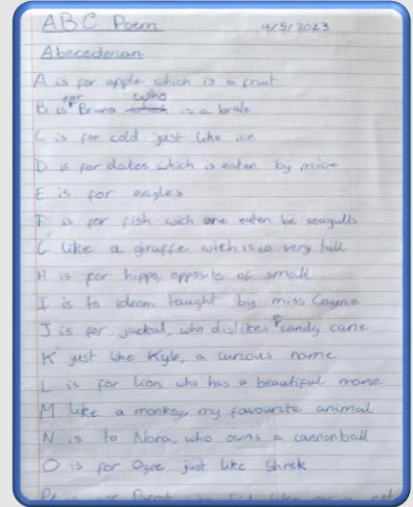 ABC Poem 4/5/2023
Abecedarian
A is for apple which is a fruit
B is for Bruno who is a brute
C is for cold just like ice
D is for dates which is eaten by mice
E is for eagles
F is for fish wich are eaten be seagulls
G like a giraffe wich is so very tall
H is for hippo, opposite of small
I is to ideom taught by miss Coyne
J is for jackal, who dislikes candy cane
K just like Kyle, a curious name
L is for Lion who has a beautiful mane
M like a monkey, my favourite animal
N is to Nora, who owns a cannonball
O is for Ogre just like Shrek